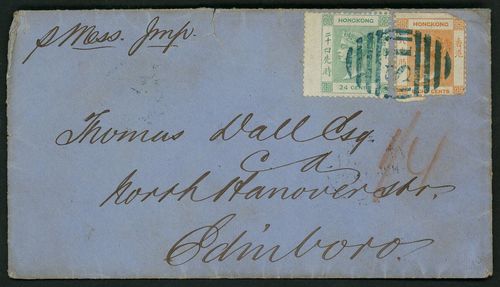 p Mess. Imp.
HONGKONG
二十四先時
24 CENTS
HONGKONG
香港
CENTS
Thomas Dall Esq.
C.A.
North Hanover Str.
Edinboro.
1/4